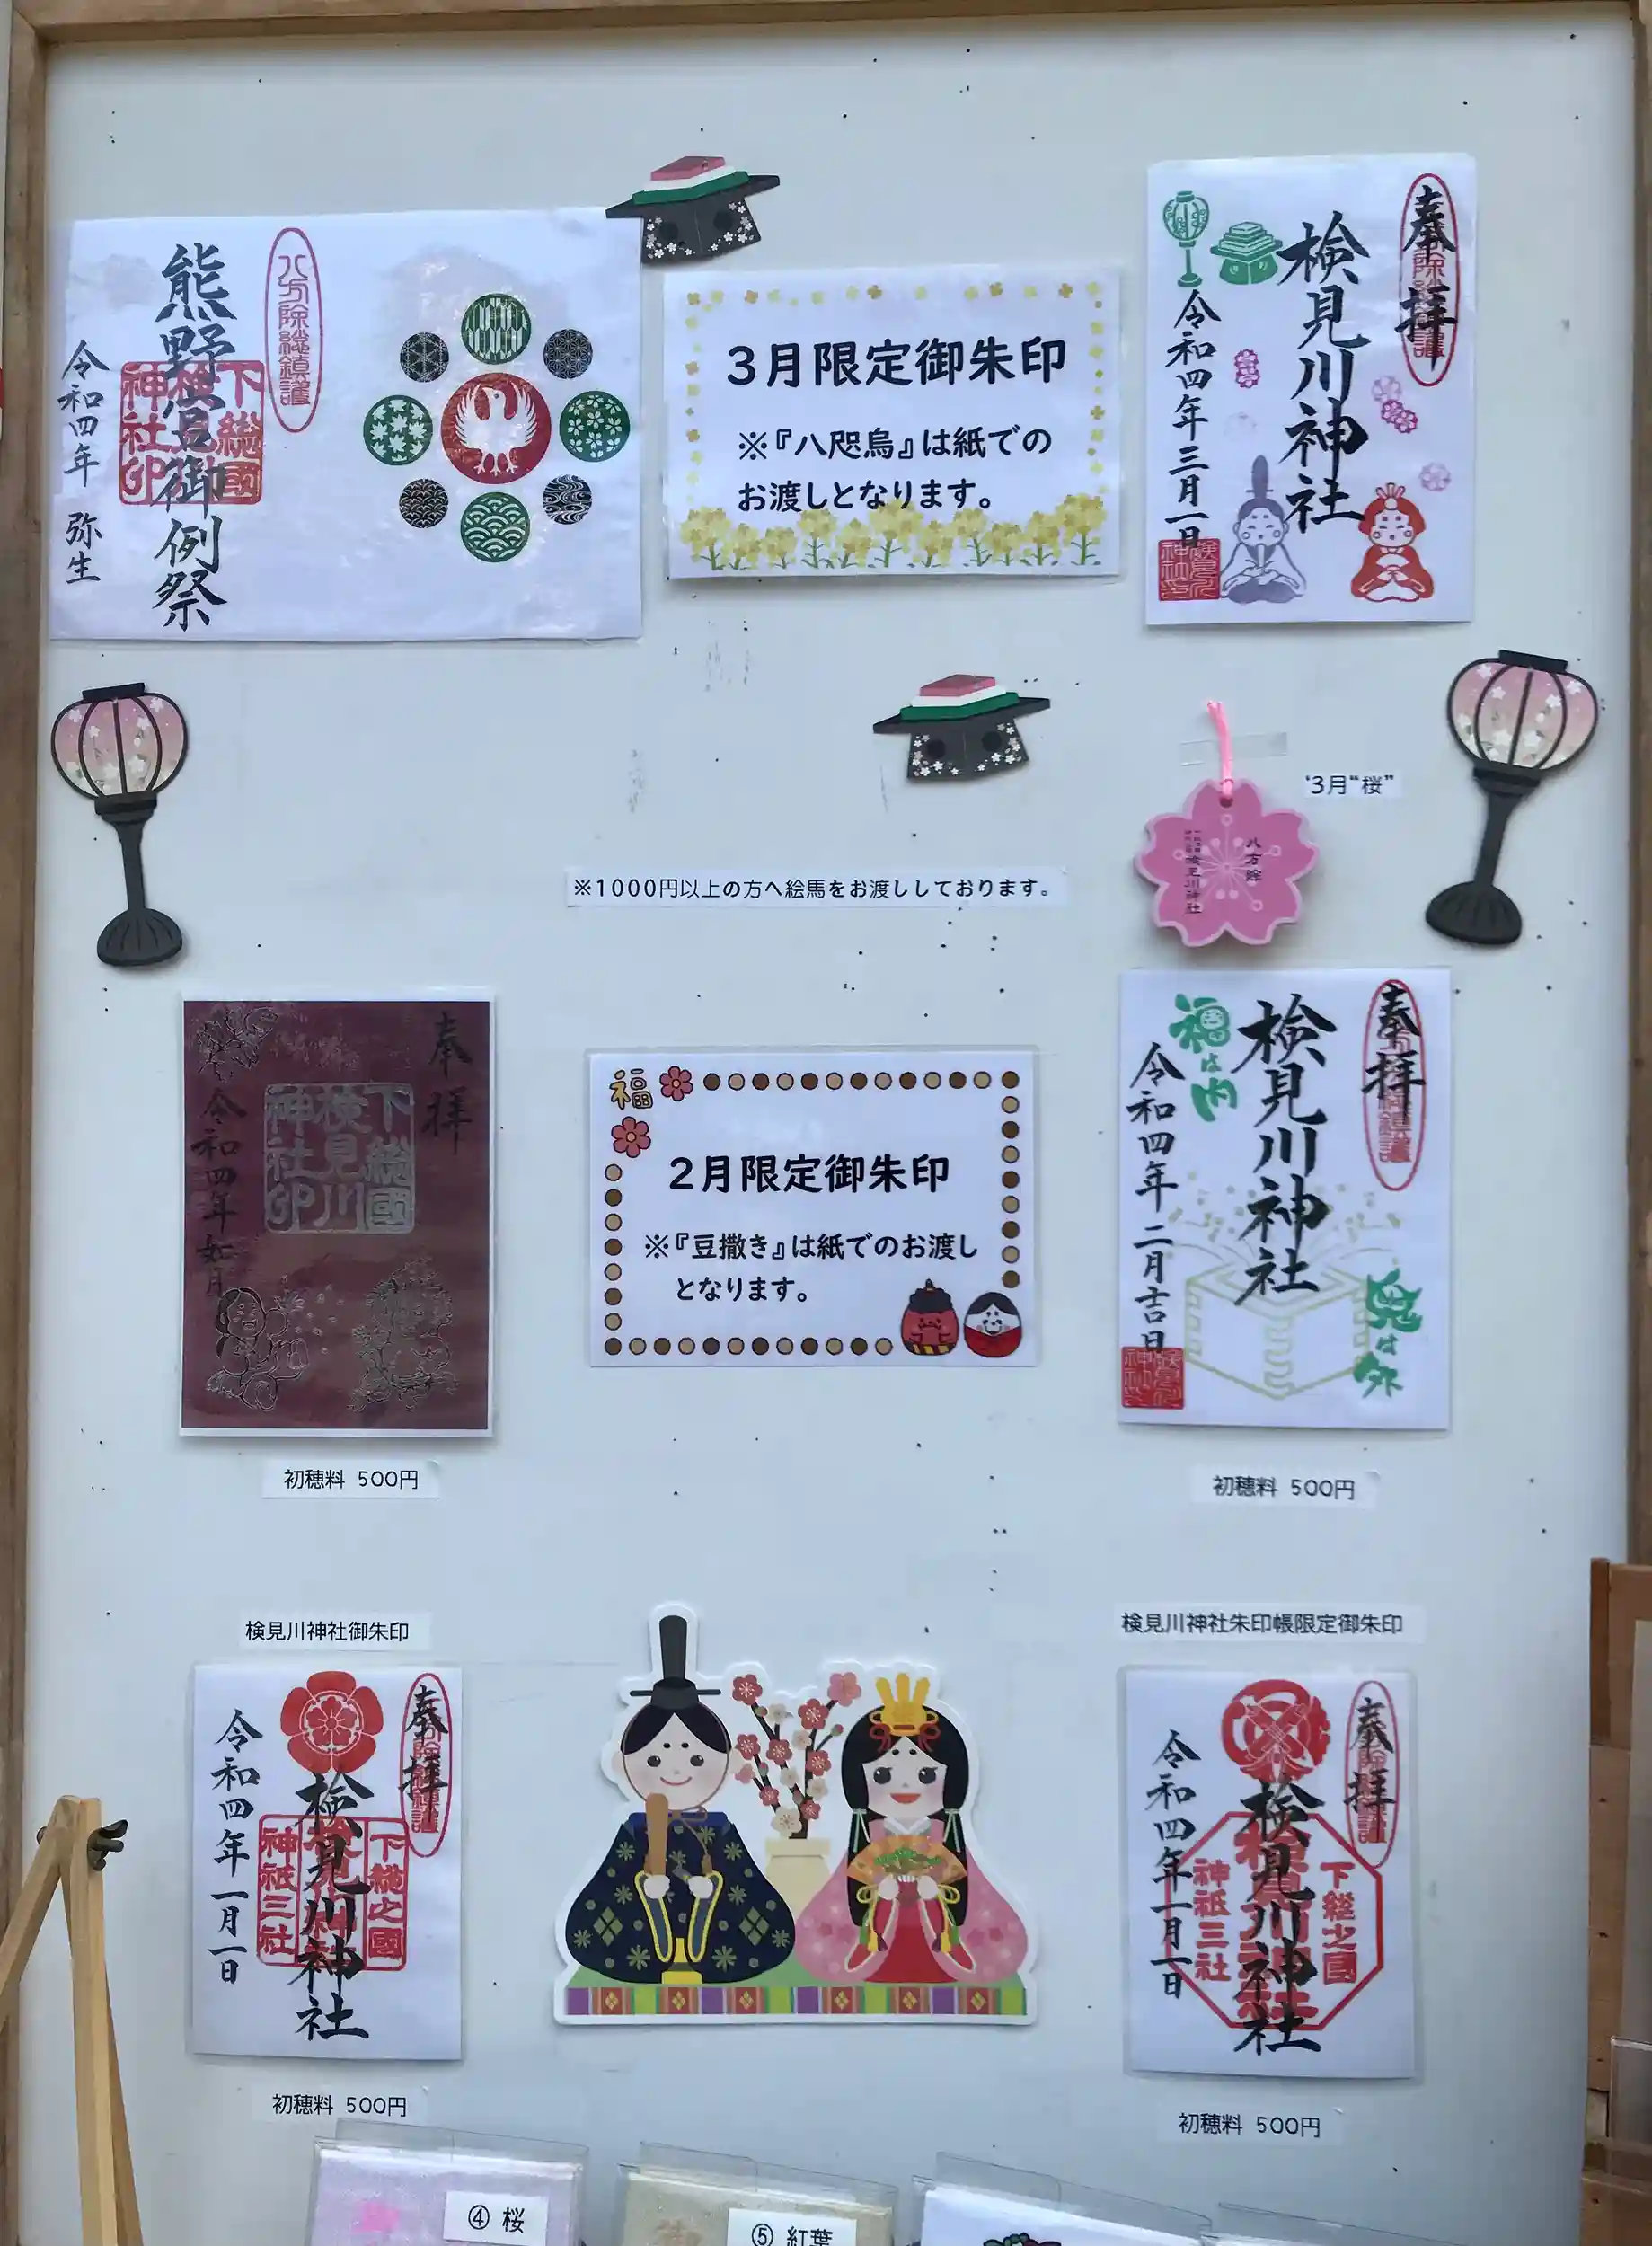 八方除総鎮護
熊野宮御例祭
下総國
検見川
神社印
令和四年 弥生
3月限定御朱印
※『八咫烏』は紙での
お渡しとなります。
奉拝
検見川神社
令和四年三月一日
"3月"桜"
八方除
検見川神社
※1000円以上の方へ絵馬をお渡ししております。
奉拝
下総國
検見川
神社印
令和四年如月
初穂料 500円
福
2月限定御朱印
※『豆撒き』は紙でのお渡し
となります。
奉拝
検見川神社
福は内
鬼は外
令和四年二月吉日
初穂料 500円
検見川神社御朱印
奉拝
検見川神社
下総之國
神祇三社
令和四年一月一日
初穂料 500円
検見川神社朱印帳限定御朱印
奉拝
検見川神社
下総之國
神祇三社
令和四年一月一日
初穂料 500円
④ 桜
⑤ 紅葉